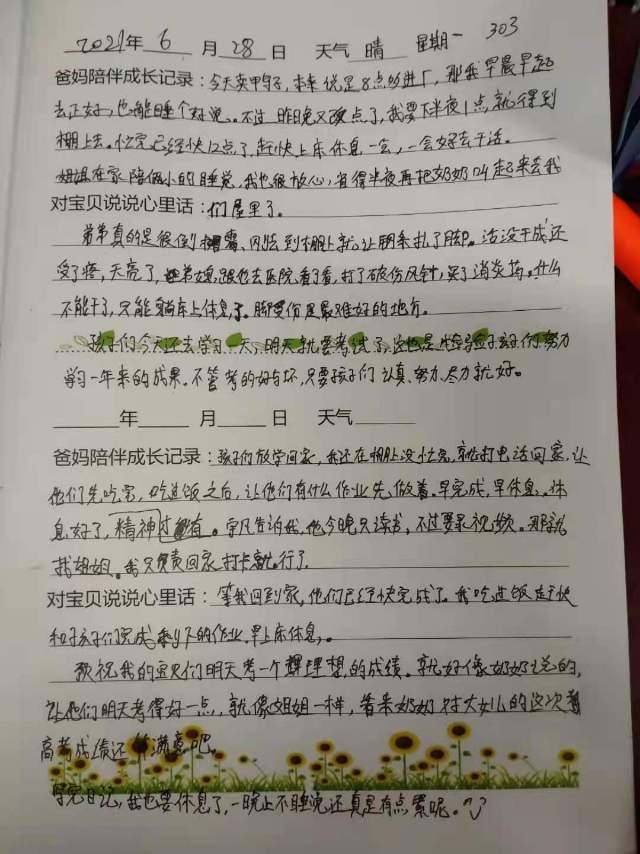 2021年 6 月 28 日 天气 晴 星期一 303
爸妈陪伴成长记录：今天卖鸭子，本来说是8点的进厂，那我早晨早起
去正好，也能睡个好觉。不过昨晚又改点了，我要下半夜1点就得到
棚上去。忙完已经快12点了，赶快上床休息一会，一会好去干活。
姐姐在家陪俩小的睡觉，我也很放心，省得半夜再把奶奶叫起来去我
对宝贝说说心里话：们屋里了。
弟弟真的是很倒霉，刚到棚上就让钉扎了脚。活没干成还
受了疼，天亮了，弟媳跟他去医院看了看，打了破伤风针，买了消炎药。什么
不能干了，只能躺床上休息了。脚受伤是最难好的地方。
孩子们今天还去学习一天，明天就要考试了，这也是检验孩子们努力
学习一年来的成果。不管考的好与坏，只要孩子们认真、努力、尽力就好。
年 月 日 天气
爸妈陪伴成长记录：孩子们放学回家，我还在棚上没忙完，就打电话回家，让
他们先吃完，吃过饭之后，让他们有什么作业先做着。早完成，早休息。休
息好了，精神才有。字凡告诉我，他今晚只读书，不过要录视频。那就
找姐姐。我只负责回家打卡就行了。
对宝贝说说心里话：等我回到家，他们已经快完成了。我吃过饭赶快
和孩子们完成剩下的作业，早上床休息。
预祝我的宝贝们明天考一个理想的成绩。就好像奶奶说的，
让他们明天考得好一点，就像姐姐一样，看来奶奶对大女儿的这次
高考成绩还算满意吧。
写完日记，我也要休息了，一晚上不睡觉还真是有点累呢。